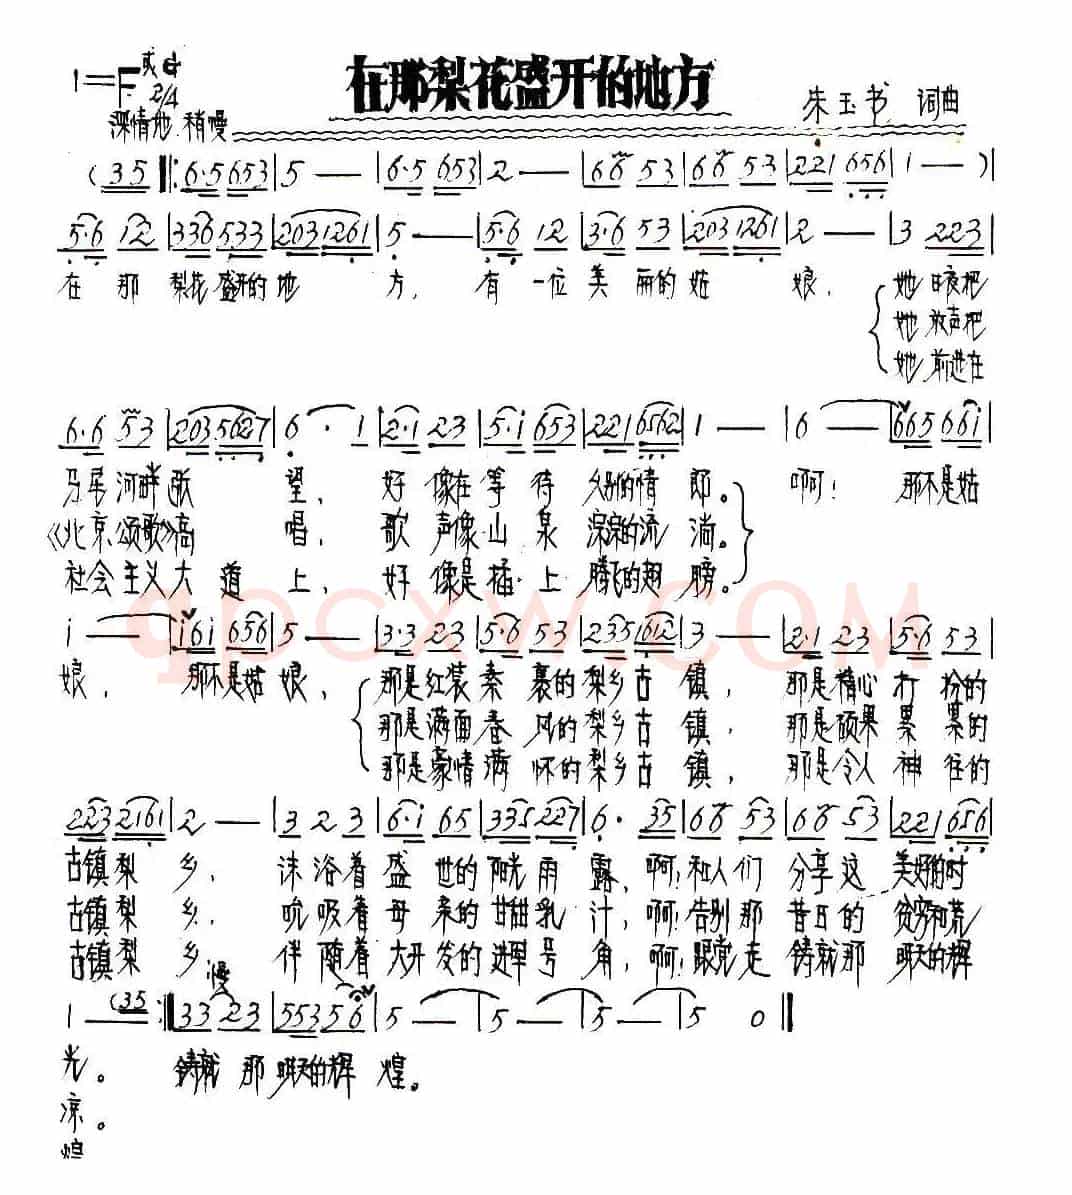 在那梨花盛开的地方
1=F 或G 2/4
朱玉书 词曲
深情地 稍慢
(35‖:6·5 653|5 —|6·5 653|2 —|66 53|66 53|221 656|1 —)|
5·6 12|336 533|203 1261|5 —|5·6 12|3·6 53|203 1261|2 —|3 223|
在那 梨花盛开的地 方, 有一位美丽的姑 娘, 她日夜把
她放声把
她前进在
6·6 53|203 5627|6· 1|2·1 23|5·i 653|221 6562|1 —|6 —|665 66i|
马岸河畔 望, 好像在等待 的情郎。 啊! 那不是姑
《北京颂歌》高 唱, 歌声像山泉淙淙的流淌。
社会主义大道 上, 好像是插上腾飞的翅膀。
i —|i6i 656|5 —|3·3 23|5·6 53|235 1612|3 —|2·1 23|5·6 53|
娘, 那不是姑 娘, 那是红装素裹的梨乡古镇, 那是精心打扮的
那是满面春风的梨乡古镇, 那是硕果累累的
那是豪情满怀的梨乡古镇, 那是令人神往的
223 2161|2 —|3 2 3|6·i 65|335 227|6· 35|66 53|66 53|221 656|
古镇梨 乡, 沐浴着盛世的阳光雨露, 啊!和人们分享这美好的时
古镇梨 乡, 吮吸着母亲的甘甜乳汁, 啊!告别那昔日的贫穷和荒
古镇梨 乡, 伴随着大开发的进军号角, 啊!跟党走铸就那明天的辉
慢
1 — (35:‖33 23|553 56|5 —|5 —|5 —|5 0‖
光。 铸就那明天的辉 煌。
凉。
煌
qpcxw.com